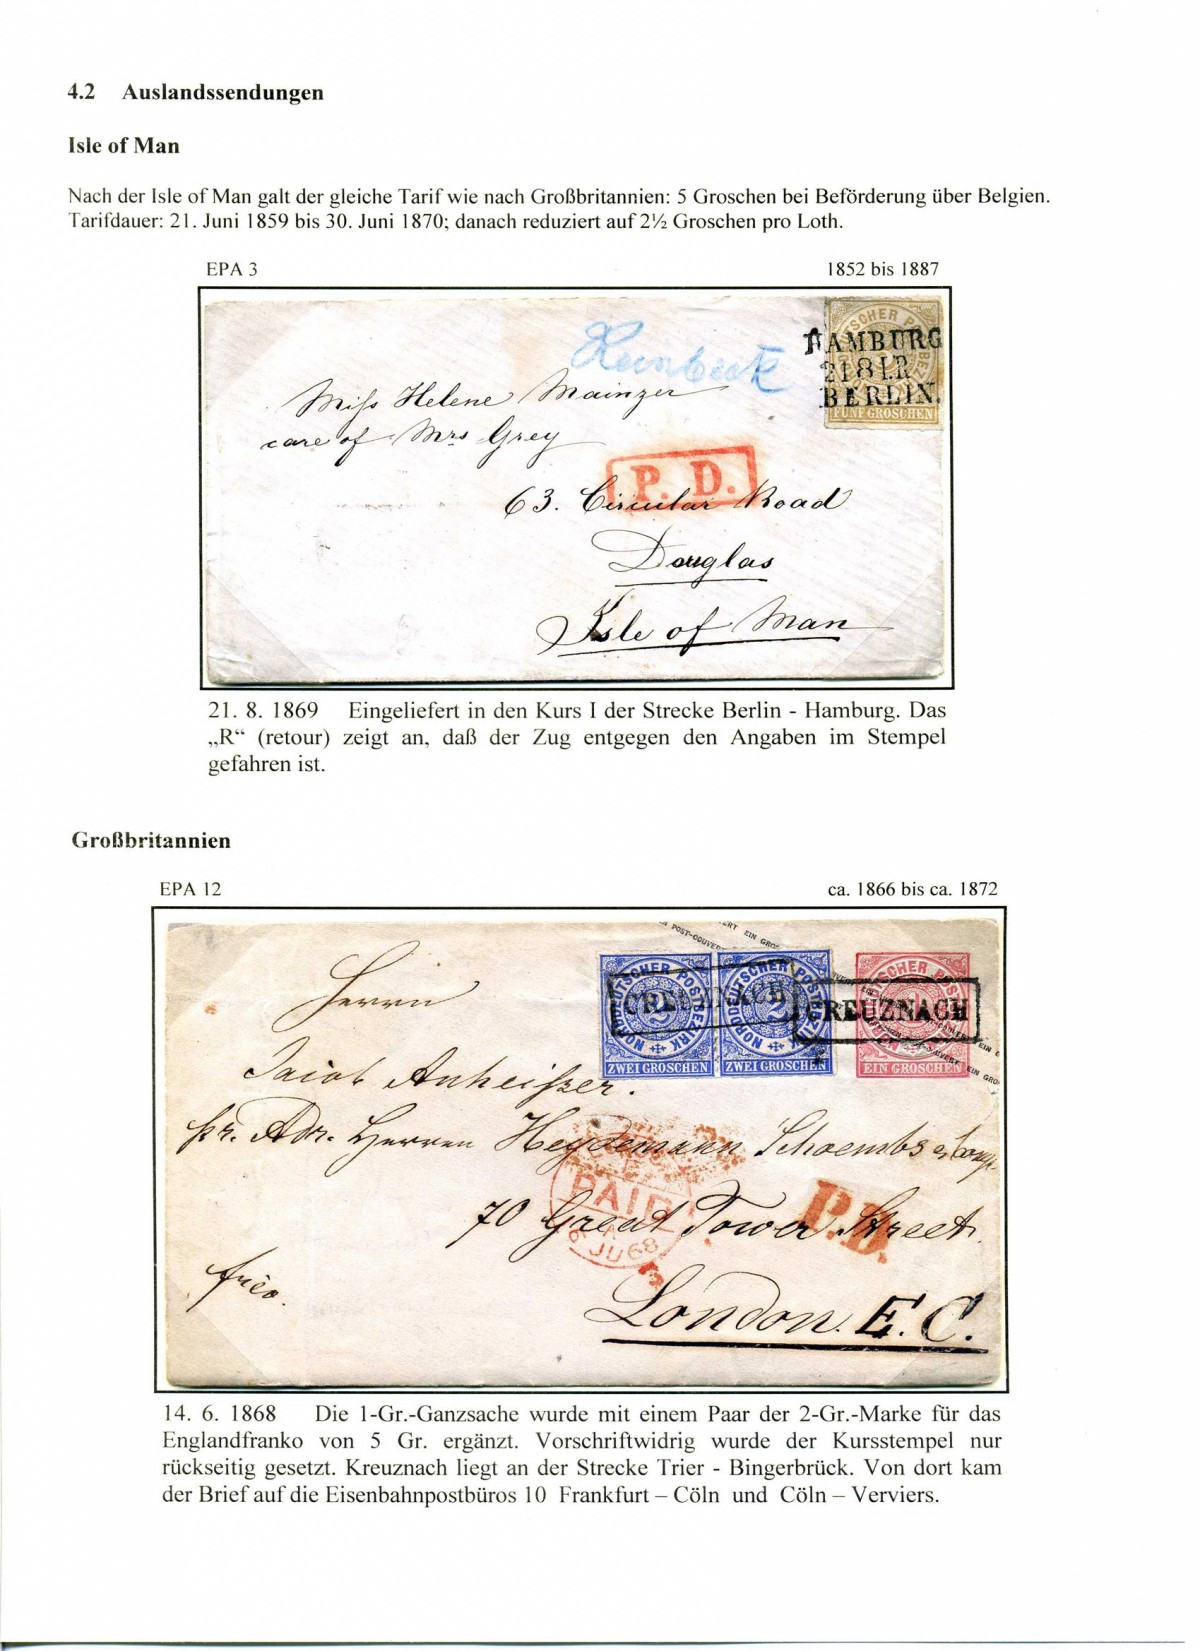 4.2 Auslandssendungen
Isle of Man
Nach der Isle of Man galt der gleiche Tarif wie nach Großbritannien: 5 Groschen bei Beförderung über Belgien.
Tarifdauer: 21. Juni 1859 bis 30. Juni 1870; danach reduziert auf 2½ Groschen pro Loth.
EPA 3 1852 bis 1887
HAMBURG
21 8 I R
BERLIN.
FÜNF GROSCHEN
Reinbeck
Miss Helene Mainzer
care of Mrs Grey
P. D.
63. Circular Road
Douglas
Isle of Man
21. 8. 1869 Eingeliefert in den Kurs I der Strecke Berlin - Hamburg. Das
„R“ (retour) zeigt an, daß der Zug entgegen den Angaben im Stempel
gefahren ist.
Großbritannien
EPA 12 ca. 1866 bis ca. 1872
NORDDEUTSCHER POSTBEZIRK 2 ZWEI GROSCHEN
NORDDEUTSCHER POSTBEZIRK 2 ZWEI GROSCHEN
EIN GROSCHEN
CREUZNACH
CREUZNACH
Herrn
Jacob Anheisser.
pr. Adr. Herren Heydemann Schoembs & Comp
PAID
JU 68
P.D.
70 Great Tower Street.
frco.
London. E. C.
14. 6. 1868 Die 1-Gr.-Ganzsache wurde mit einem Paar der 2-Gr.-Marke für das
Englandfranko von 5 Gr. ergänzt. Vorschriftwidrig wurde der Kursstempel nur
rückseitig gesetzt. Kreuznach liegt an der Strecke Trier - Bingerbrück. Von dort kam
der Brief auf die Eisenbahnpostbüros 10 Frankfurt – Cöln und Cöln – Verviers.